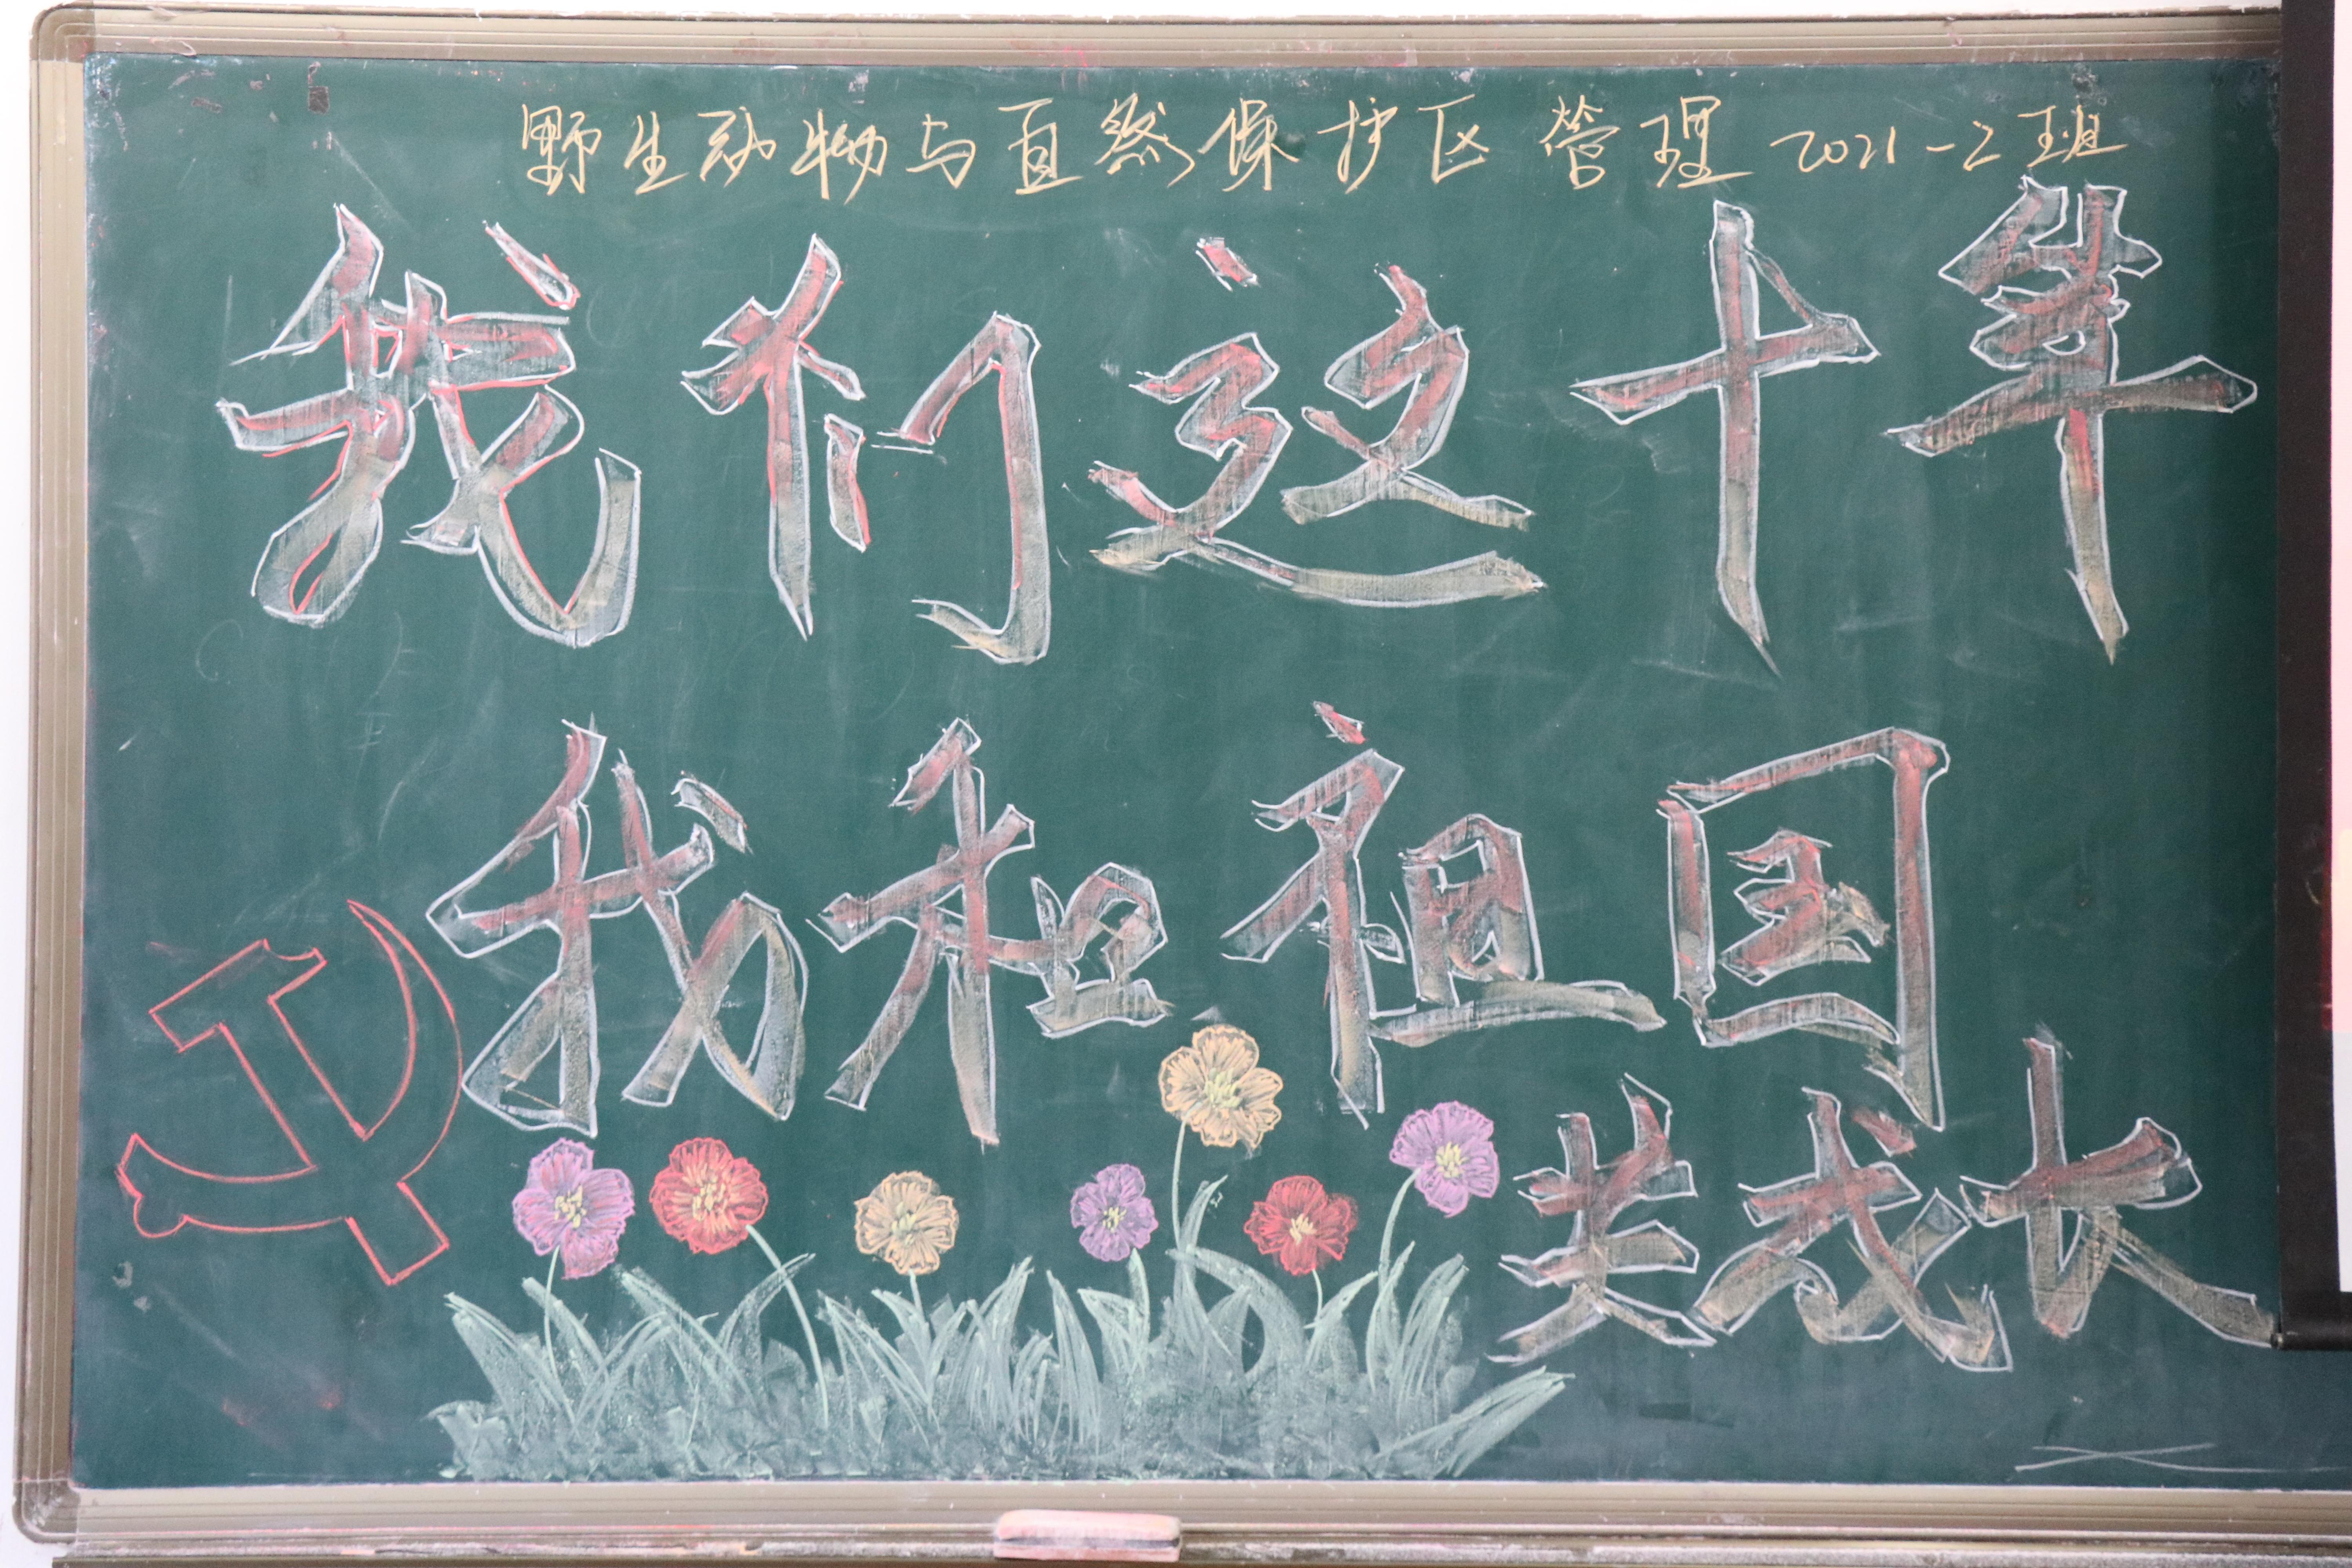 野生动物与自然保护区管理2021-2班
我们这十年
我和祖国
共成长